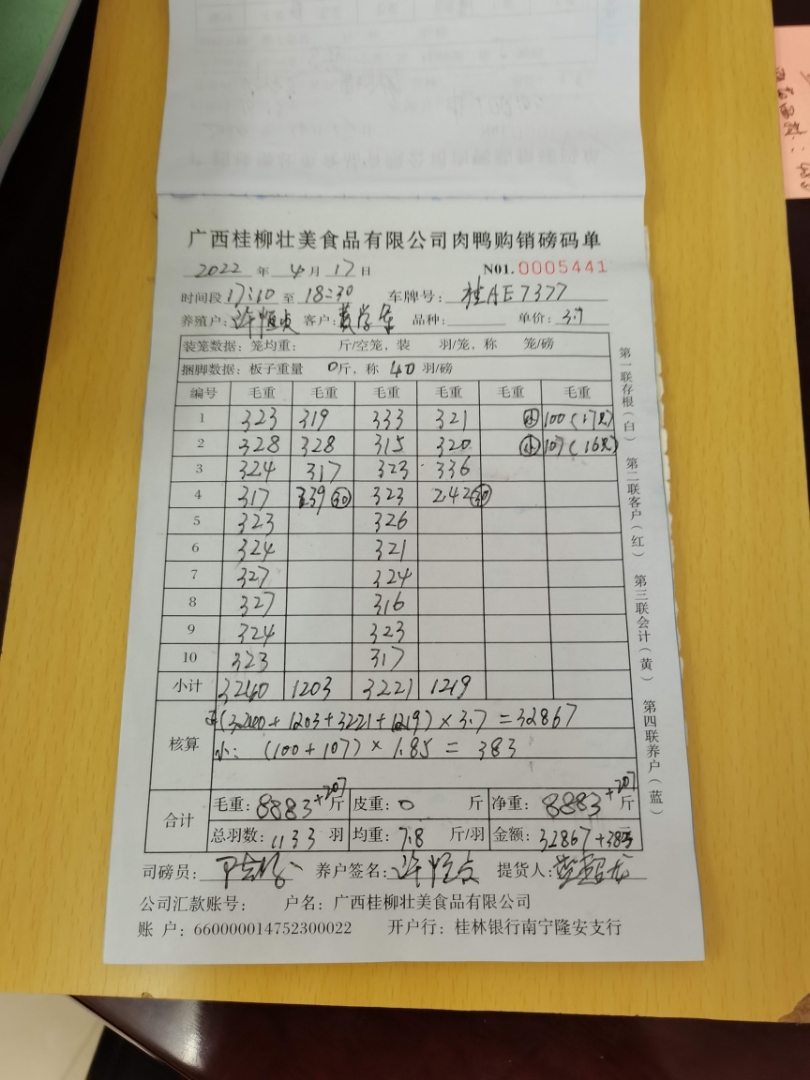 广西桂柳壮美食品有限公司肉鸭购销磅码单
2022 年 4 月 17 日 N01.0005441
时间段 17:10 至 18:30 车牌号: 桂AE7377
养殖户: 许恒贞 客户: 黄学 品种: 单价: 3.7
装笼数据: 笼均重: 斤/空笼, 装 羽/笼, 称 笼/磅
捆脚数据: 板子重量 0斤, 称 40 羽/磅
编号 毛重 毛重 毛重 毛重 毛重 毛重
1 323 319 333 321 小 100(17只)
2 328 328 315 320 小 107(16只)
3 324 317 323 336
4 317 239 30 323 242 30
5 323 326
6 324 321
7 327 324
8 327 316
9 324 323
10 323 317
小计 3240 1203 3221 1219
核算 正(3240+1203+3221+1219)×3.7=32867
小: (100+107)×1.85= 383
合计 毛重: 8883+207斤 皮重: 0 斤 净重: 8883+207斤
总羽数: 1133 羽 均重: 7.8 斤/羽 金额: 32867+383
司磅员: 养户签名: 许恒贞 提货人:
公司汇款账号: 户名: 广西桂柳壮美食品有限公司
账 户: 660000014752300022 开户行: 桂林银行南宁隆安支行
第一联存根(白) 第二联客户(红) 第三联会计(黄) 第四联养户(蓝)